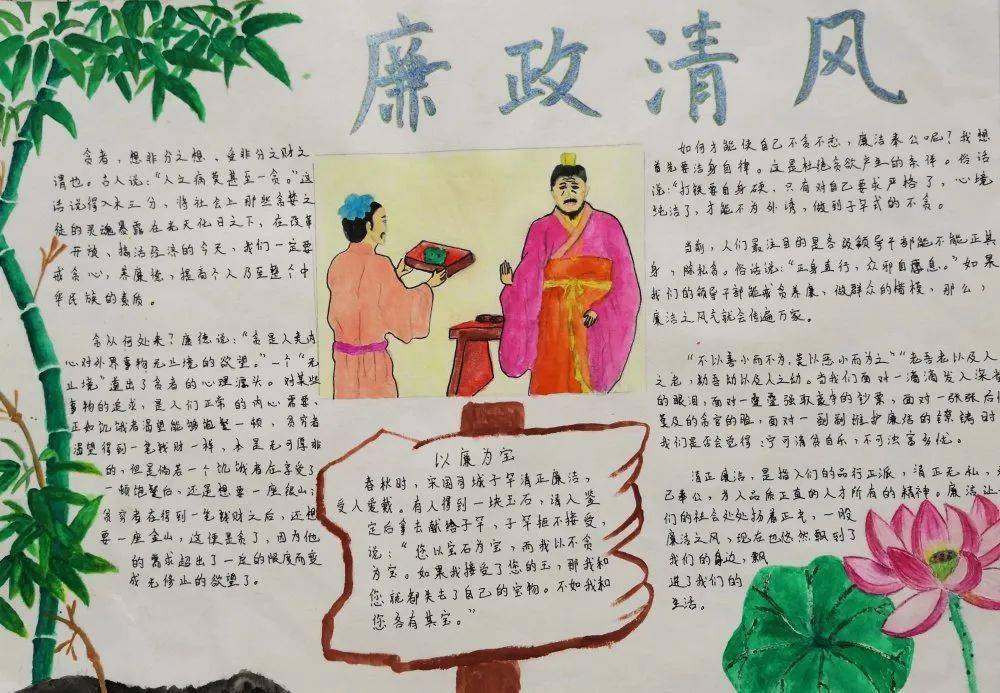 廉政清风
贪者，想非分之想、受非分之财之
谓也。古人说：“人之病莫甚至一贪。”这
话说得入木三分，将社会上那些贪婪之
徒的灵魂暴露在光天化日之下，在改革
开放、搞活经济的今天，我们一定要
戒贪心，养廉德，提高个人乃至整个中
华民族的素质。
贪从何处来？廉德说：“贪是人类内
心对外界事物无止境的欲望。”一个“无
止境”道出了贪者的心理源头。对某些
事物的追求，是人们正常的内心需要，
正如饥饿者渴望能够饱餐一顿，贫穷者
渴望得到一笔钱财一样，本是无可厚非
的，但是倘若一个饥饿者在享受了
一顿饱餐后，还是想要一座粮山；
贫穷者在得到一笔钱财之后，还想
要一座金山，这便是贪了，因为他
的需求超出了一定的限度而变
成无休止的欲望了。
以廉为宝
春秋时，宋国司城子罕清正廉洁，
受人爱戴。有人得到一块玉石，请人鉴
定后拿去献给子罕，子罕拒不接受，
说：“您以宝石为宝，而我以不贪
为宝。如果我接受了您的玉，那我和
您就都失去了自己的宝物。不如我和
您各有其宝。”
如何才能使自己不贪不恋，廉洁奉公呢？我想
首先要洁身自律。这是杜绝贪欲产生的条律。俗话
说：“打铁要自身硬，只有对自己要求严格了，心境
纯洁了，才能不为外诱，做到子罕式的不贪。
当前，人们最注目的是各级领导干部能不能正其
身，除私贪。俗话说：“正身直行，众邪自息。”如果
我们的领导干部能戒贪养廉，做群众的楷模，那么，
廉洁之风气就会传遍万家。
“不以善小而不为，莫以恶小而为之”“老吾老以及人
之老，幼吾幼以及人之幼。当我们面对一滴滴发人深省
的眼泪，面对一叠叠强取豪夺的钞票，面对一张张后
及的贪官的脸，面对一副副维护廉洁的镣铐时
我们是否会觉得：宁可清贫自乐，不可浊富多忧。
清正廉洁，是指人们的品行正派，清正无私，
己奉公，为人品质正直的人才所有的精神。廉洁让
们的社会处处扬着正气，一股
廉洁之风，现在也悠然飘到了
我们的身边，飘
进了我们的
生活。